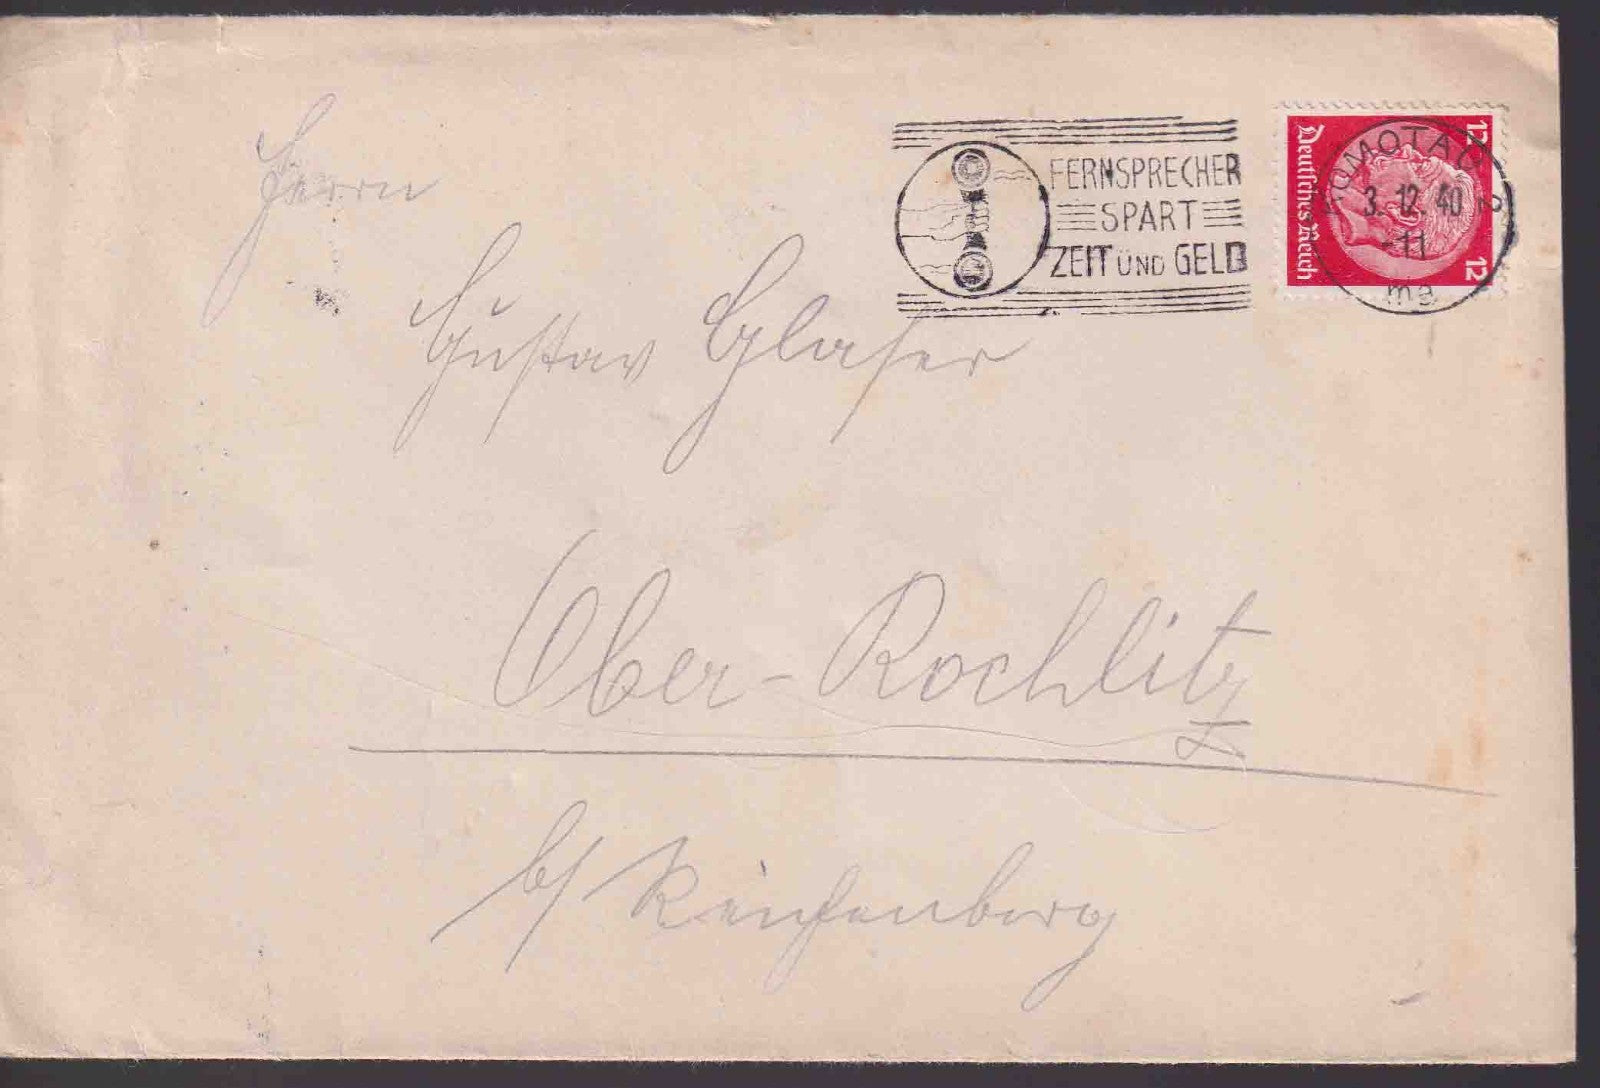 FERNSPRECHER
SPART
ZEIT UND GELD
KOMOTAU 2
3. 12. 40
-11
mg
Deutsches Reich
12
12
Herrn
Gustav Glaser
Ober-Rochlitz
b/ Reichenberg